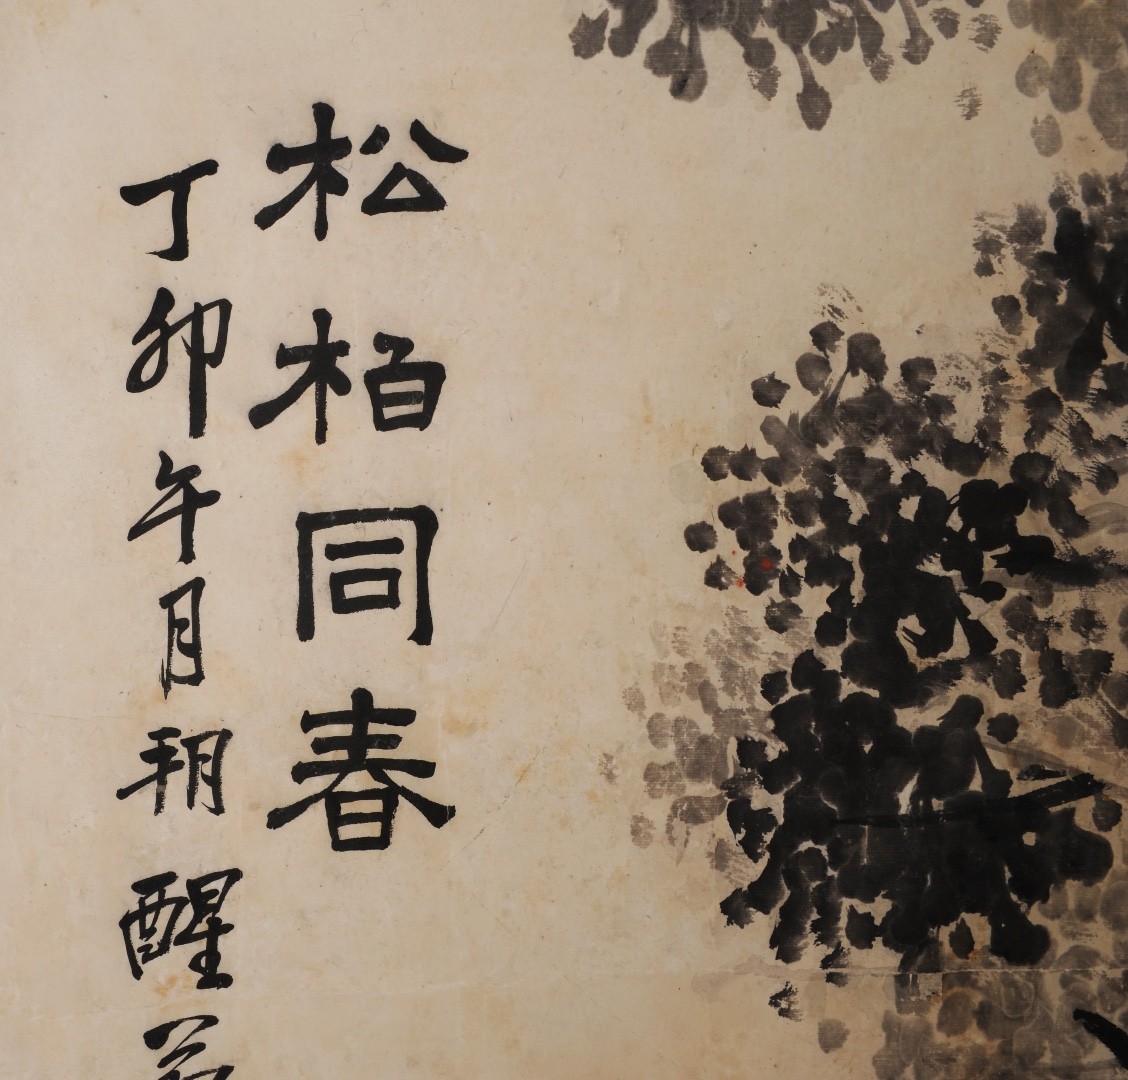 松柏同春
丁卯午月朔醒